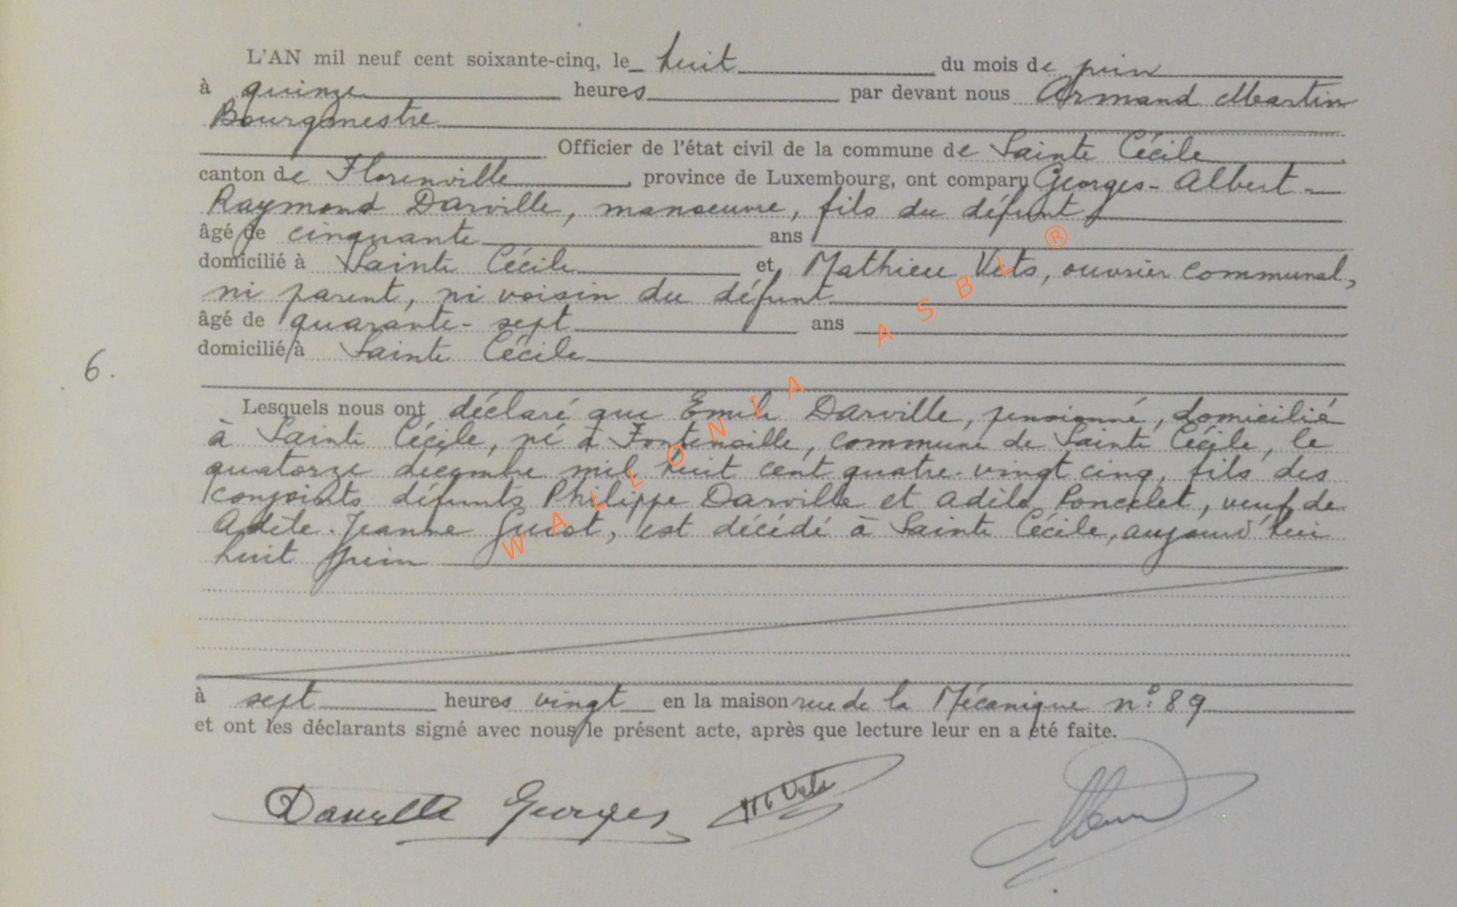 L'AN mil neuf cent soixante-cinq, le huit du mois de juin
à quinze heures par devant nous Armand Martin
Bourgmestre
Officier de l'état civil de la commune de Sainte Cécile
canton de Florenville, province de Luxembourg, ont comparu Georges-Albert-
Raymond Darville, manoeuvre, fils du défunt
âgé de cinquante ans
domicilié à Sainte Cécile et Mathieu Vets, ouvrier communal,
ni parent, ni voisin du défunt
âgé de quarante-sept ans
domicilié à Sainte Cécile
6.
Lesquels nous ont déclaré que Emile Darville, pensionné, domicilié
à Sainte Cécile, né à Fontenoille, commune de Sainte Cécile, le
quatorze decembre mil huit cent quatre-vingt cinq, fils des
conjoints défunts Philippe Darville et Adèle Poncelet, veuf de
Adèle-Jeanne Guiot, est décédé à Sainte Cécile, aujourd'hui
huit juin
à sept heures vingt en la maison rue de la Mécanique n° 89
et ont les déclarants signé avec nous le présent acte, après que lecture leur en a été faite.
Darville Georges M Vets
WALLONIA ASBL ®